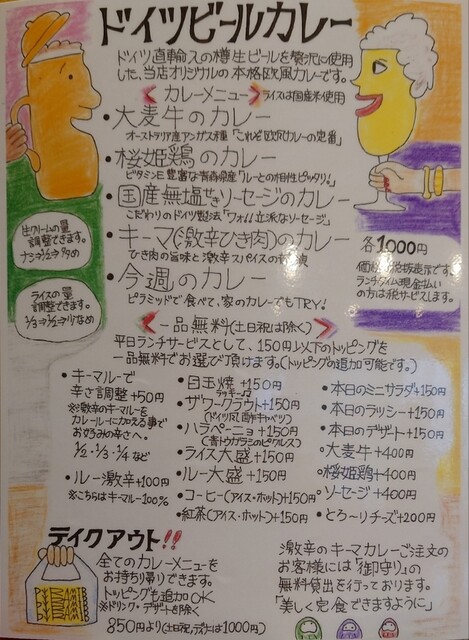 ドイツビールカレー
ドイツ直輸入の樽生ビールを贅沢に使用
した、当店オリジナルの本格欧風カレーです。
カレーメニュー ライスは国産米使用
・大麦牛のカレー
オーストラリア産アンガス種「これぞ欧風カレーの定番」
・桜姫鶏のカレー
ビタミンE豊富な青森県産「ルーとの相性ピッタリ!」
・国産無塩せきソーセージのカレー
こだわりのドイツ製法「ワオ!立派なソーセージ」
・キーマ(激辛ひき肉)のカレー
ひき肉の旨味と激辛スパイスの
・今週のカレー
ピラミッドで食べて、家のカレーでもTRY!
生クリームの量
調整できます。
ナシ→1/2→少なめ
ライスの量
調整できます。
1/3→1/2→少なめ
各1000円
価格は税抜表示です。
ランチタイム現金払い
の方は税サービスします。
一品無料(土日祝は除く)
平日ランチサービスとして、150円以下のトッピングを
一品無料でお選び頂けます。(トッピングの追加可能です。)
・キーマルーで
辛さ調整+50円
※激辛のキーマルーを
カレールーに加える事で
お好みの辛さへ。
1/2・1/3・1/4など
・ルー激辛+100円
※こちらはキーマルー100%
・目玉焼+150円
・ザワークラウト+150円
(ドイツ風酢キャベツ)
・ハラペーニョ+150円
(青トウガラシのピクルス)
・ライス大盛+150円
・ルー大盛+150円
・コーヒー(アイス・ホット)+150円
・紅茶(アイス・ホット)+150円
・本日のミニサラダ+150円
・本日のラッシー+150円
・本日のデザート+150円
・大麦牛+400円
・桜姫鶏+400円
・ソーセージ+400円
・とろ〜りチーズ+200円
テイクアウト!!
全てのカレーメニューを
お持ち帰りできます。
トッピングも追加OK
※ドリンク・デザートを除く
850円より(土日祝、ディナーは1000円)
激辛のキーマカレーご注文の
お客様には「御守り」の
無料貸出を行っております。
「美しく完食できますように」